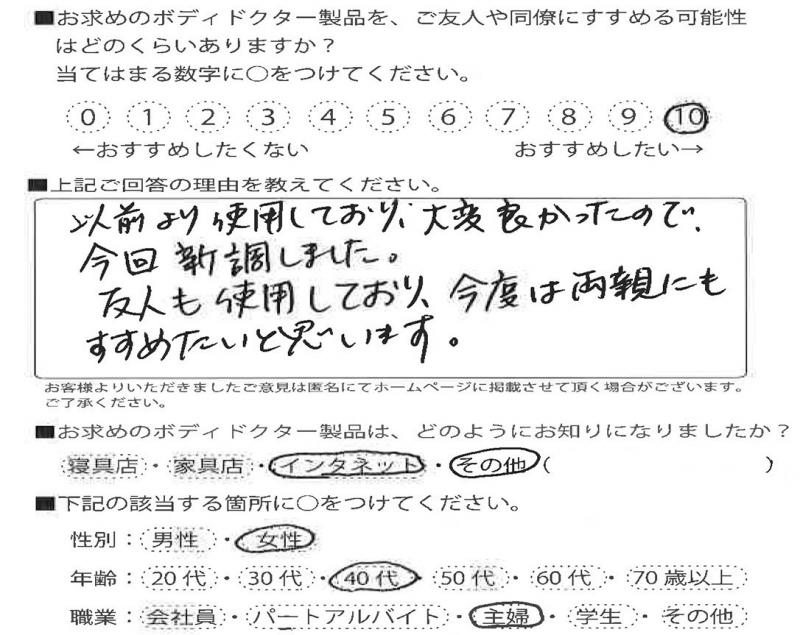 ■お求めのボディドクター製品を、ご友人や同僚にすすめる可能性
はどのくらいありますか？
当てはまる数字に○をつけてください。
0 1 2 3 4 5 6 7 8 9 10
←おすすめしたくない おすすめしたい→
■上記ご回答の理由を教えてください。
以前より使用しており、大変良かったので、
今回新調しました。
友人も使用しており、今度は両親にも
すすめたいと思います。
お客様よりいただきましたご意見は匿名にてホームページに掲載させて頂く場合がございます。
ご了承ください。
■お求めのボディドクター製品は、どのようにお知りになりましたか？
寝具店・家具店・インタネット・その他（ ）
■下記の該当する箇所に○をつけてください。
性別：男性・女性
年齢：20代・30代・40代・50代・60代・70歳以上
職業：会社員・パートアルバイト・主婦・学生・その他